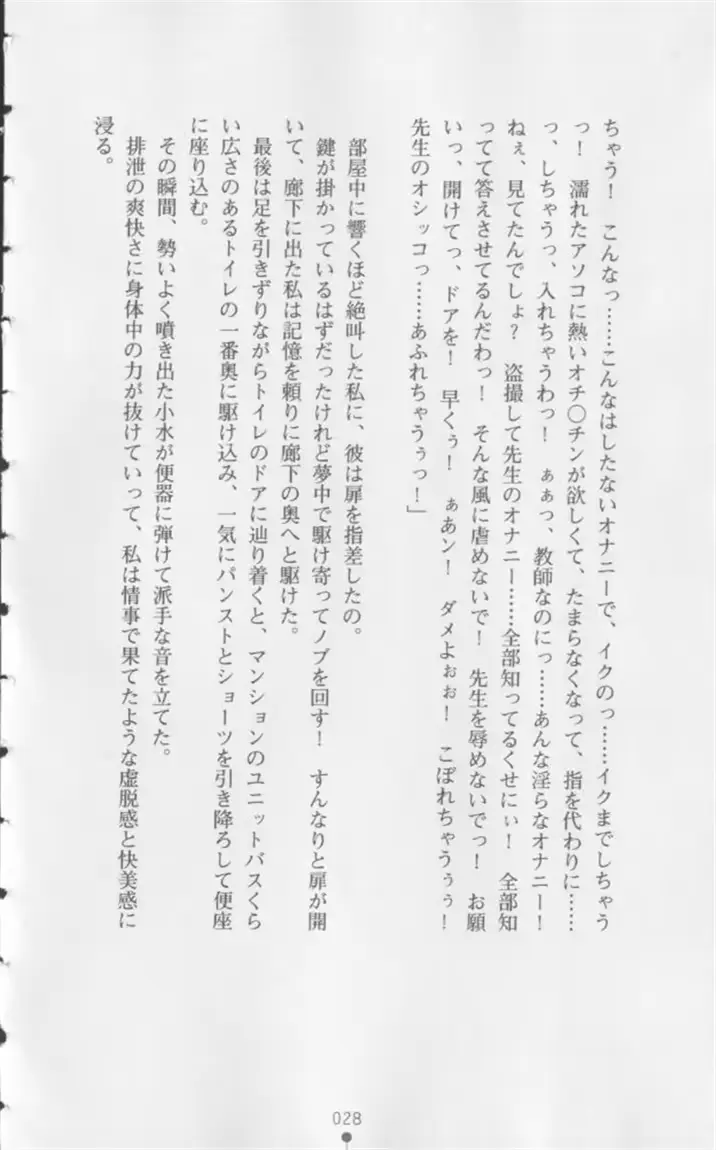 ちゃう！　こんなっ……こんなはしたないオナニーで、イクのっ……イクまでしちゃう
っ！　濡れたアソコに熱いオチ〇チンが欲しくて、たまらなくなって、指を代わりに……
っ、しちゃうっ、入れちゃうわっ！　ぁぁっ、教師なのにっ……あんな淫らなオナニー！
ねぇ、見てたんでしょ？　盗撮して先生のオナニー……全部知ってるくせにぃ！　全部知
ってて答えさせてるんだわっ！　そんな風に虐めないで！　先生を辱めないでっ！　お願
いっ、開けてっ、ドアを！　早くぅ！　ぁあン！　ダメよぉぉ！　こぼれちゃうぅぅ！
先生のオシッコっ……あふれちゃうぅっ！」
部屋中に響くほど絶叫した私に、彼は扉を指差したの。
鍵が掛かっているはずだったけれど夢中で駆け寄ってノブを回す！　すんなりと扉が開
いて、廊下に出た私は記憶を頼りに廊下の奥へと駆けた。
最後は足を引きずりながらトイレのドアに辿り着くと、マンションのユニットバスくら
い広さのあるトイレの一番奥に駆け込み、一気にパンストとショーツを引き降ろして便座
に座り込む。
その瞬間、勢いよく噴き出た小水が便器に弾けて派手な音を立てた。
排泄の爽快さに身体中の力が抜けていって、私は情事で果てたような虚脱感と快美感に
浸る。
028